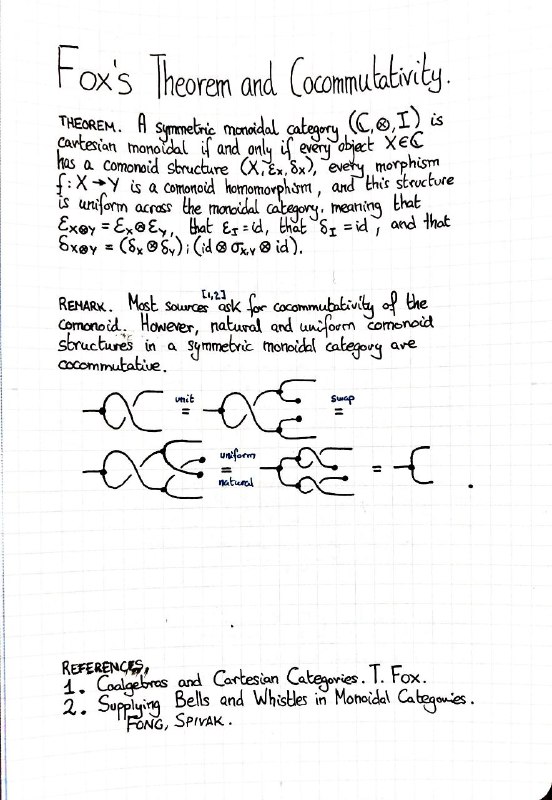 Fox's Theorem and Cocommutativity.
THEOREM. A symmetric monoidal category (ℂ,⊗,I) is
cartesian monoidal if and only if every object X∈ℂ
has a comonoid structure (X, εx, δx), every morphism
f: X → Y is a comonoid homomorphism, and this structure
is uniform across the monoidal category, meaning that
εx⊗y = εx⊗εy, that εI = id, that δI = id, and that
δx⊗y = (δx⊗δy);(id⊗σx,y⊗id).
[1,2]
REMARK. Most sources ask for cocommutativity of the
comonoid. However, natural and uniform comonoid
structures in a symmetric monoidal category are
cocommutative.
unit = swap =
uniform = natural =
REFERENCES,
1. Coalgebras and Cartesian Categories. T. Fox.
2. Supplying Bells and Whistles in Monoidal Categories.
FONG, SPIVAK.